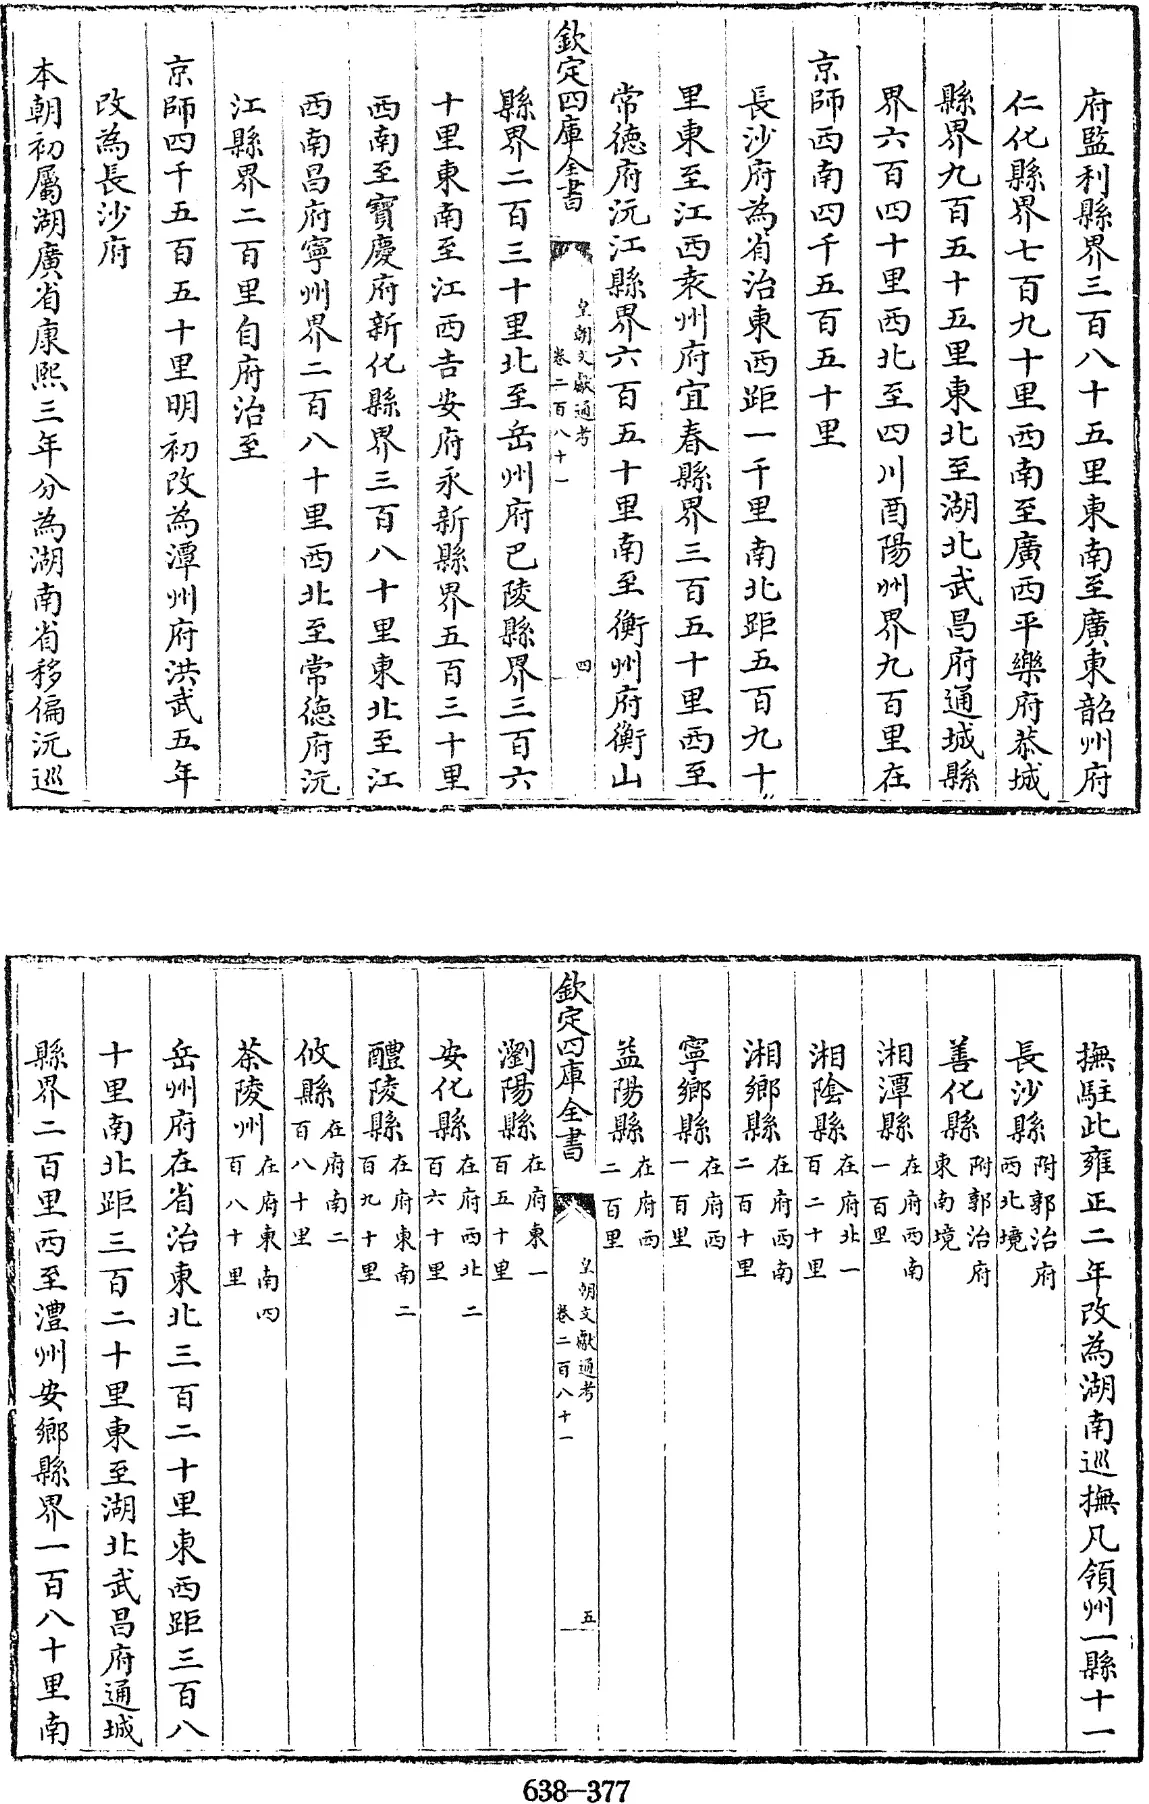 府監利縣界三百八十五里東南至廣東韶州府
仁化縣界七百九十里西南至廣西平樂府恭城
縣界九百五十五里東北至湖北武昌府通城縣
界六百四十里西北至四川酉陽州界九百里在
京師西南四千五百五十里
長沙府為省治東西距一千里南北距五百九十
里東至江西袁州府宜春縣界三百五十里西至
常徳府沅江縣界六百五十里南至衡州府衡山
欽定四庫全書
皇朝文獻通考
卷二百八十一
四
縣界二百三十里北至岳州府巴陵縣界三百六
十里東南至江西吉安府永新縣界五百三十里
西南至寶慶府新化縣界三百八十里東北至江
西南昌府寧州界二百八十里西北至常徳府沅
江縣界二百里自府治至
京師四千五百五十里明初改為潭州府洪武五年
改為長沙府
本朝初屬湖廣省康熙三年分為湖南省移偏沅巡
撫駐此雍正二年改為湖南巡撫凡領州一縣十一
長沙縣附郭治府西北境
善化縣附郭治府東南境
湘潭縣在府西南一百里
湘陰縣在府北一百二十里
湘鄉縣在府西南二百十里
寧鄉縣在府西一百里
益陽縣在府西二百里
欽定四庫全書
皇朝文獻通考
卷二百八十一
五
瀏陽縣在府東一百五十里
安化縣在府西北二百六十里
醴陵縣在府東南二百九十里
攸縣在府南二百八十里
茶陵州在府東南四百八十里
岳州府在省治東北三百二十里東西距三百八
十里南北距三百二十里東至湖北武昌府通城
縣界二百里西至澧州安鄉縣界一百八十里南
638-377